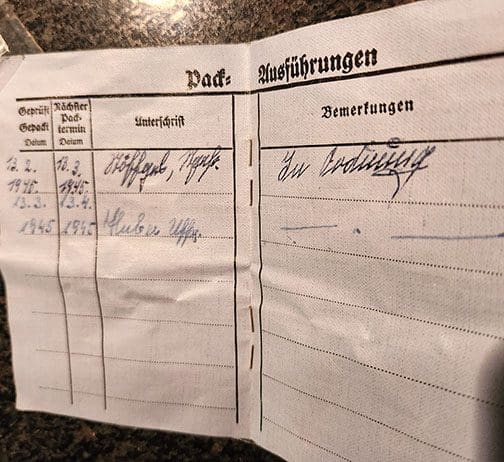 Pack- Ausführungen
Geprüft Gepackt Datum
Nächster Pack- termin Datum
Unterschrift
Bemerkungen
13.2. 13.3. In Ordnung
1945. 1945.
13.3. 13.4.
1945 1945 Huber Uffz.